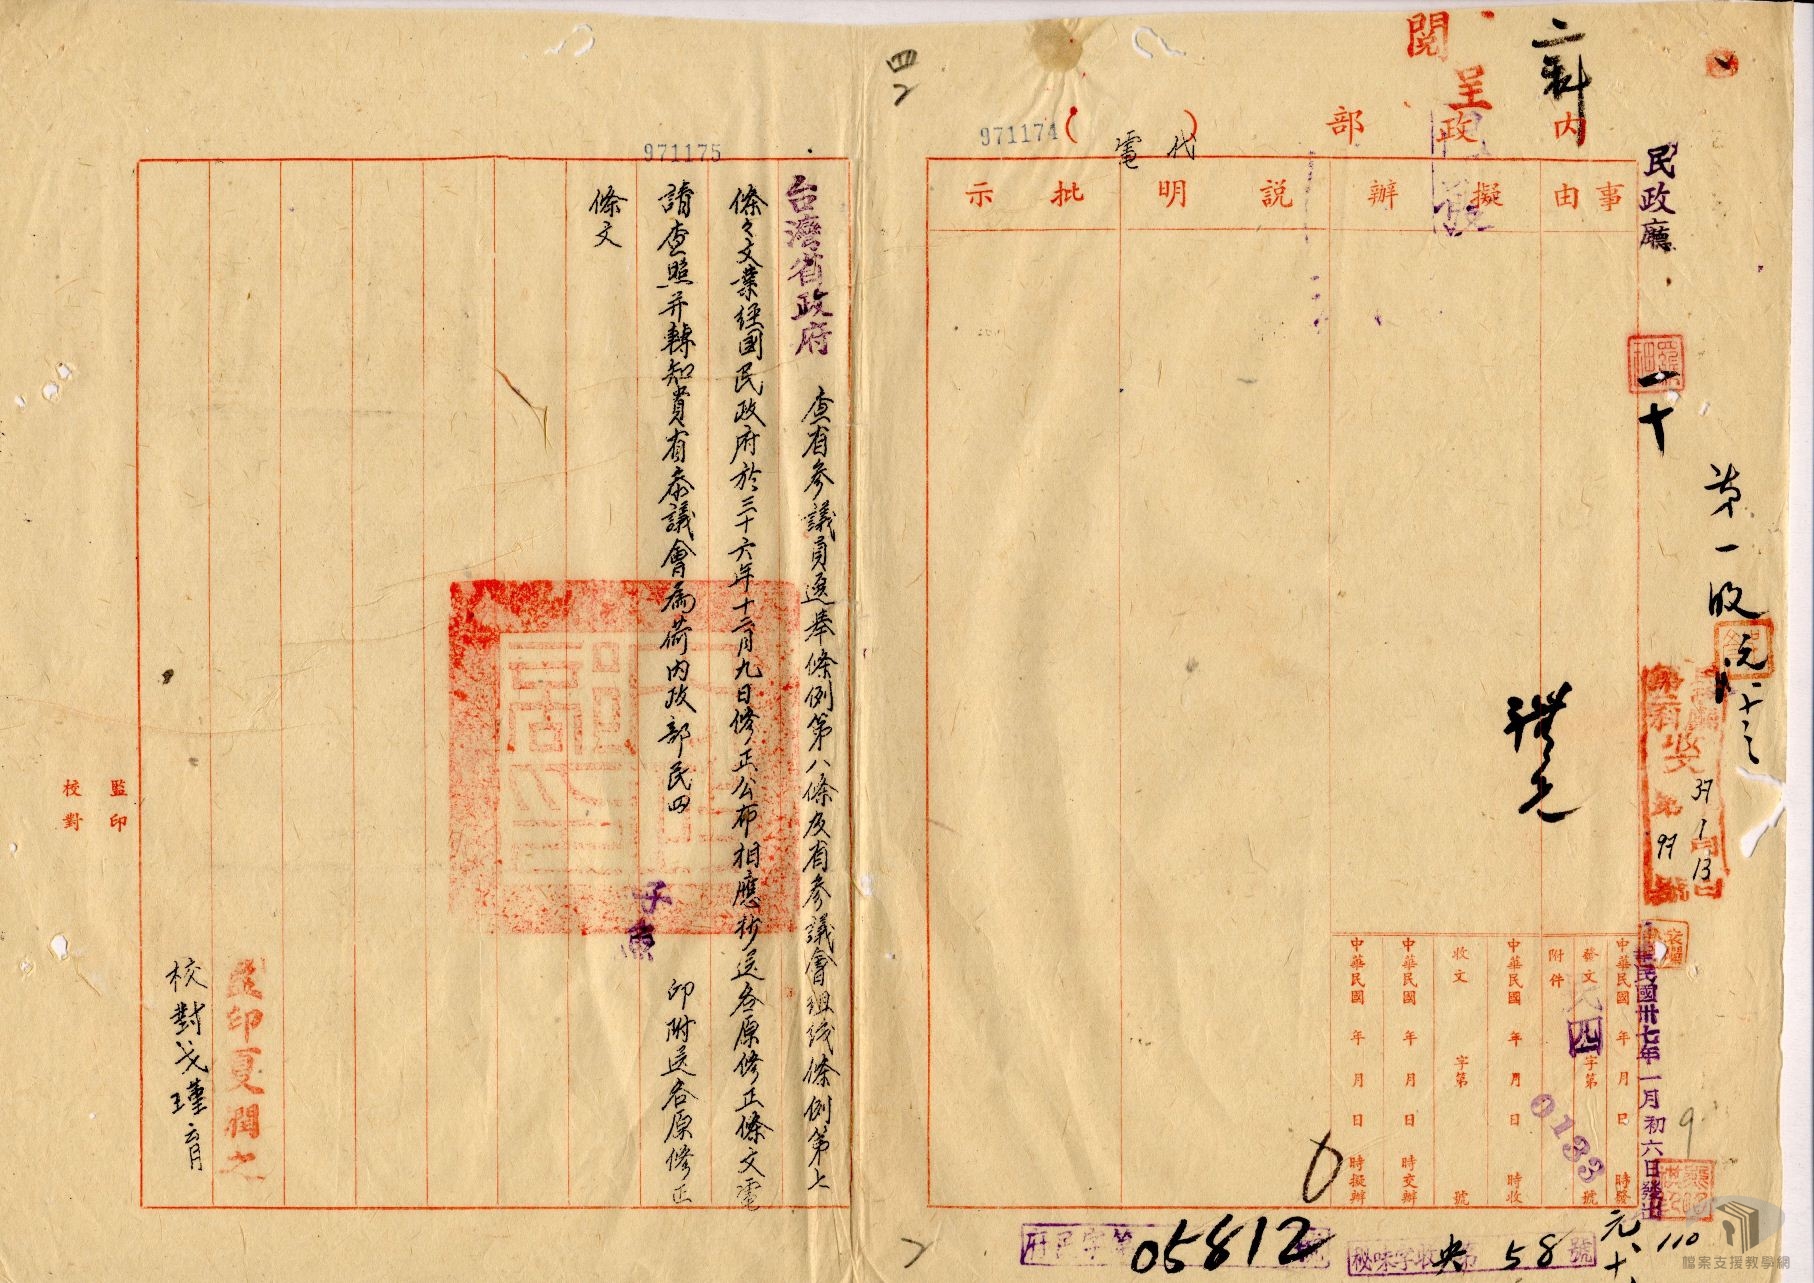 二科
閱
呈
內政部
(代電)
971174
民政廳
事由
擬辦
說明
批示
一
十
第一收
37
1月13日
第97號
中華民國卅七年一月初六日發出
中華民國 年 月 日 時發
發文 民四 字第 0133 號
附件
中華民國 年 月 日 時收
收文 字第 號
中華民國 年 月 日 時交辦
中華民國 年 月 日 時擬辦
9
110
央 58 號
05812
四
971175
台灣省政府 查省參議員選舉條例第八條及省參議會組織條例第七
條條文業經國民政府於三十六年十二月九日修正公布相應抄送各原修正條文電
請查照并轉知貴省參議會為荷內政部民四 子魚 印附送各原修正
條文
監印夏潤之
校對戈瑾
監印
校對
檔案支援教學網